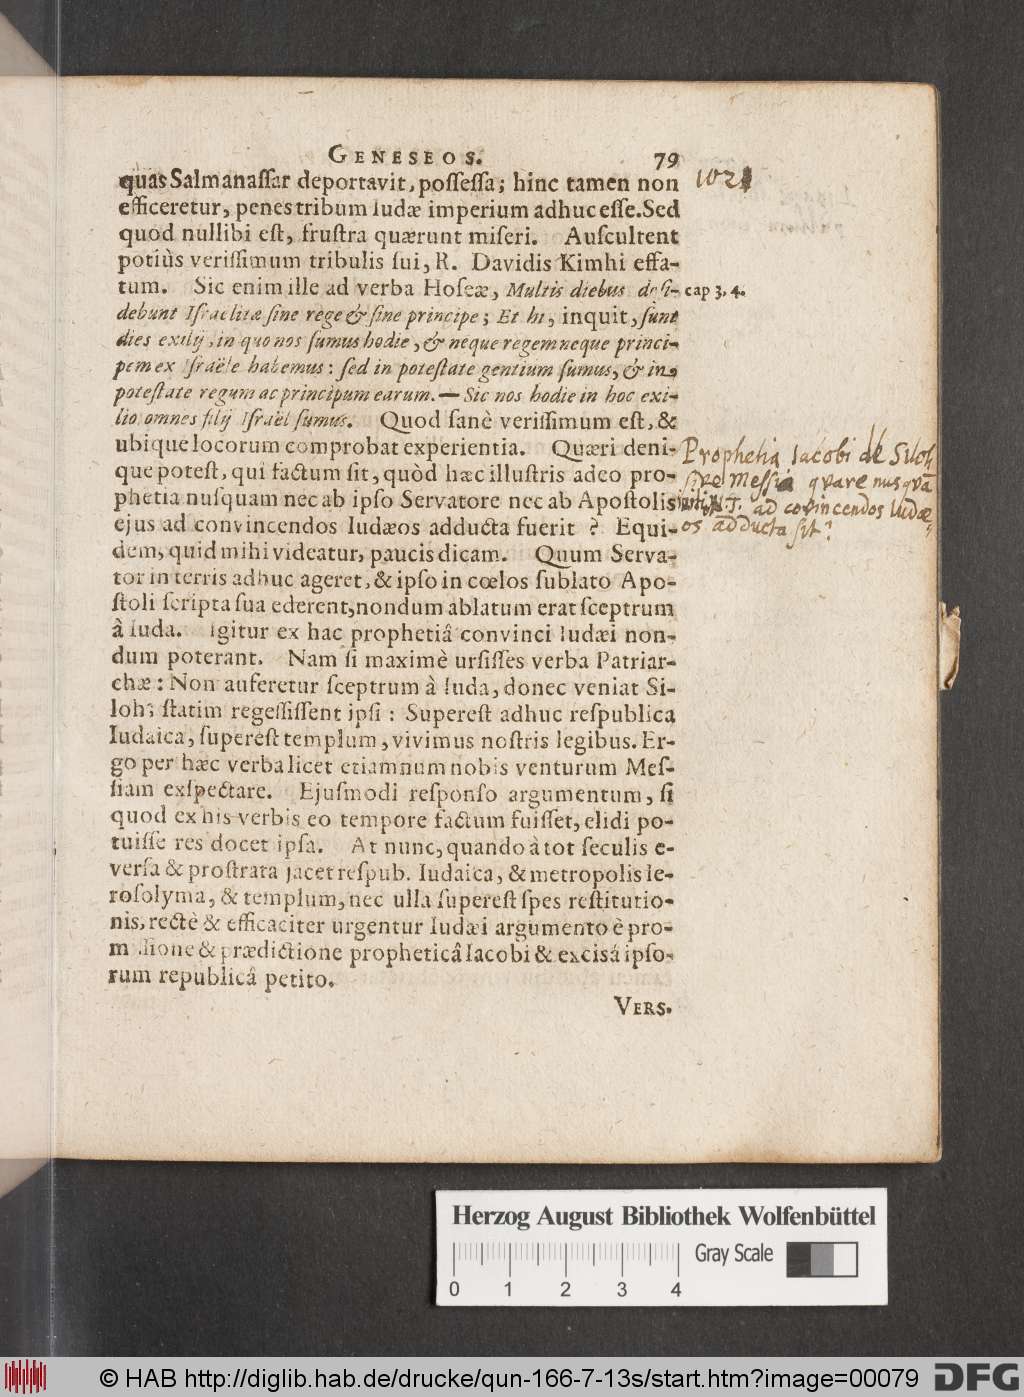 GENESEOS. 79
quas Salmanaſſar deportavit, poſſeſſa; hinc tamen non
102
efficeretur, penes tribum Iudæ imperium adhuc eſſe. Sed
quod nullibi eſt, fruſtra quærunt miſeri. Auſcultent
potiùs veriſſimum tribulis ſui, R. Davidis Kimhi effa-
tum. Sic enim ille ad verba Hoſeæ, Multis diebus deſi-
cap 3. 4.
debunt Iſraelitæ ſine rege & ſine principe; Et hi, inquit, ſunt
dies exilij, in quo nos ſumus hodie, & neque regem neque princi-
pem ex Iſraële habemus: ſed in poteſtate gentium ſumus, & in
poteſtate regum ac principum earum. — Sic nos hodie in hoc exi-
lio omnes filij Iſraël ſumus. Quod ſanè veriſſimum eſt, &
ubique locorum comprobat experientia. Quæri deni-
que poteſt, qui factum ſit, quòd hæc illuſtris adeo pro-
phetia nuſquam nec ab ipſo Servatore nec ab Apoſtolis
ejus ad convincendos Iudæos adducta fuerit ? Equi-
Prophetia Iacobi de Siloh
ſive Messia quare nusquā
N.T. ad covincendos Iudæ-
os adducta ſit?
dem, quid mihi videatur, paucis dicam. Quum Serva-
tor in terris adhuc ageret, & ipſo in cœlos ſublato Apo-
ſtoli ſcripta ſua ederent, nondum ablatum erat ſceptrum
â Iuda. Igitur ex hac prophetiâ convinci Iudæi non-
dum poterant. Nam ſi maximè urſiſſes verba Patriar-
chæ: Non auferetur ſceptrum à Iuda, donec veniat Si-
loh; ſtatim regeſſiſſent ipſi: Supereſt adhuc reſpublica
Iudaica, ſupereſt templum, vivimus noſtris legibus. Er-
go per hæc verba licet etiamnum nobis venturum Meſ-
ſiam exſpectare. Ejuſmodi reſponſo argumentum, ſi
quod ex his verbis eo tempore factum fuiſſet, elidi po-
tuiſſe res docet ipſa. At nunc, quando à tot ſeculis e-
verſa & proſtrata jacet reſpub. Iudaica, & metropolis Ie-
roſolyma, & templum, nec ulla ſupereſt ſpes reſtitutio-
nis, rectè & efficaciter urgentur Iudæi argumento è pro-
miſſione & prædictione propheticâ Iacobi & excisâ ipſo-
rum republicâ petito.
VERS.
Herzog August Bibliothek Wolfenbüttel
Gray Scale
0 1 2 3 4
© HAB http://diglib.hab.de/drucke/qun-166-7-13s/start.htm?image=00079
DFG